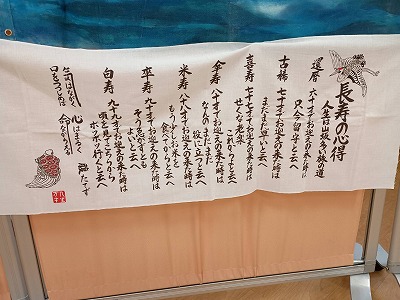 長寿の心得
人生は山坂多い旅の道
還暦 六十才でお迎えの来た時は
只今留守と云へ
古稀 七十才でお迎えの来た時は
まだまだ早いと云へ
喜寿 七十七才でお迎えの来た時は
せくな老楽
これからよと云へ
傘寿 八十才でお迎えの来た時は
なんのまだまだ
役に立つと云へ
米寿 八十八才でお迎えの来た時は
もう少しお米を
食べてからと云へ
卒寿 九十才でお迎えの来た時は
そう急がずとも
よいと云へ
白寿 九十九才でお迎えの来た時は
頃を見てこちらから
ボツボツ行くと云へ
心はまるく
気はながく
口をつつしめば
命ながらえる